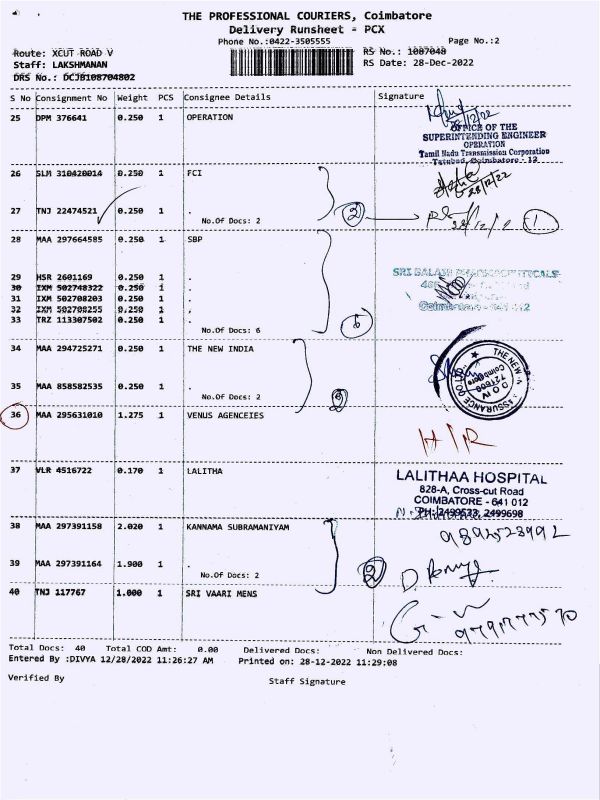 THE PROFESSIONAL COURIERS, Coimbatore
Delivery Runsheet - PCX
Phone No.:0422-3505555 Page No.:2
Route: XCUT ROAD V RS No.: 1087048
Staff: LAKSHMANAN RS Date: 28-Dec-2022
DRS No.: DCJB108704802
S No Consignment No Weight PCS Consignee Details Signature
25 DPM 376641 0.250 1 OPERATION
28/12/22
OFFICE OF THE
SUPERINTENDING ENGINEER
OPERATION
Tamil Nadu Transmission Corporation
Tatabad, Coimbatore - 12
26 SLM 310420014 0.250 1 FCI
28/12/22
27 TNJ 22474521 0.250 1 .
No.Of Docs: 2
2
1
28 MAA 297664585 0.250 1 SBP
SRI BALAJI PHARMACEUTICALS
29 HSR 2601169 0.250 1 .
30 IXM 502748322 0.250 1 .
31 IXM 502708203 0.250 1 .
32 IXM 502708255 0.250 1 .
33 TRZ 113307502 0.250 1 .
No.Of Docs: 6
6
34 MAA 294725271 0.250 1 THE NEW INDIA
THE NEW
ASSURANCE CO. LTD.
D O IV
721600
Coimbatore
35 MAA 858582535 0.250 1 .
No.Of Docs: 2
36 MAA 295631010 1.275 1 VENUS AGENCEIES
H/R
37 VLR 4516722 0.170 1 LALITHA
LALITHAA HOSPITAL
828-A, Cross-cut Road
COIMBATORE - 641 012
PH: 2499533, 2499698
38 MAA 297391158 2.020 1 KANNAMA SUBRAMANIYAM
39 MAA 297391164 1.900 1 .
No.Of Docs: 2
2
40 TNJ 117767 1.000 1 SRI VAARI MENS
Total Docs: 40 Total COD Amt: 0.00 Delivered Docs: Non Delivered Docs:
Entered By :DIVYA 12/28/2022 11:26:27 AM Printed on: 28-12-2022 11:29:08
Verified By Staff Signature